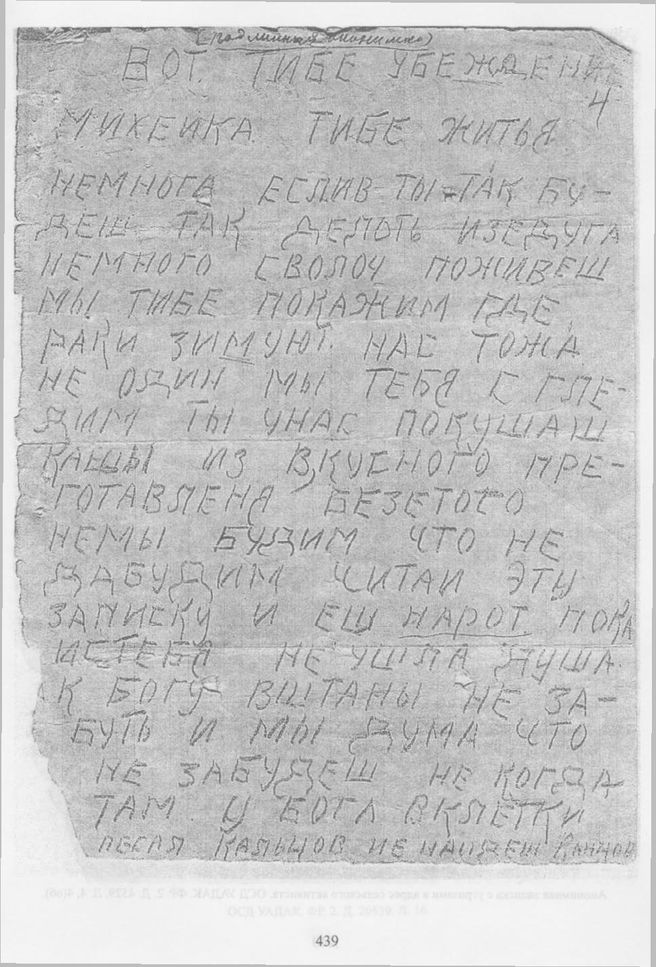 (подлинная анонимка)
ВОТ ТИБЕ УБЕЖДЕНИЕ
4
МИХЕИКА ТИБЕ ЖИТЬЯ
НЕМНОГА ЕСЛИВ ТЫ ТАК БУ-
ДЕШ ТАК ДЕЛОТЬ ИЗЕДУГА
НЕМНОГО СВОЛОЧ ПОЖИВЕШ
МЫ ТИБЕ ПОКАЖИМ ГДЕ
РАКИ ЗИМУЮТ НАС ТОЖА
НЕ ОДИН МЫ ТЕБЯ С ГЛЕ-
ДИМ ТЫ УНАС ПОКУШАШ
КАШЫ ИЗ ВКУСНОГО ПРЕ-
ГОТАВЛЕНЯ БЕЗЕТОГО
НЕМЫ БУДИМ ЧТО НЕ
ДАБУДИМ ЧИТАИ ЭТУ
ЗАПИСКУ И ЕШ НАРОТ ПОКА
ИСТЕБЯ НЕ УШЛА ДУША
К БОГУ ВШТАНЫ НЕ ЗА-
БУТЬ И МЫ ДУМА ЧТО
НЕ ЗАБУДЕШ НЕ КОГДА
ТАМ У БОГА ВКЛЕТКИ
ПЕСЛЯ КАЛЬЦОВ НЕ НАИДЕШ
Анонимная записка с угрозами в адрес сельского активиста. ОСД УАДАК. ФР. 2. Д. 4329. Л. 4, 4(об)
ОСД УАДАК. ФР. 2. Д.
439